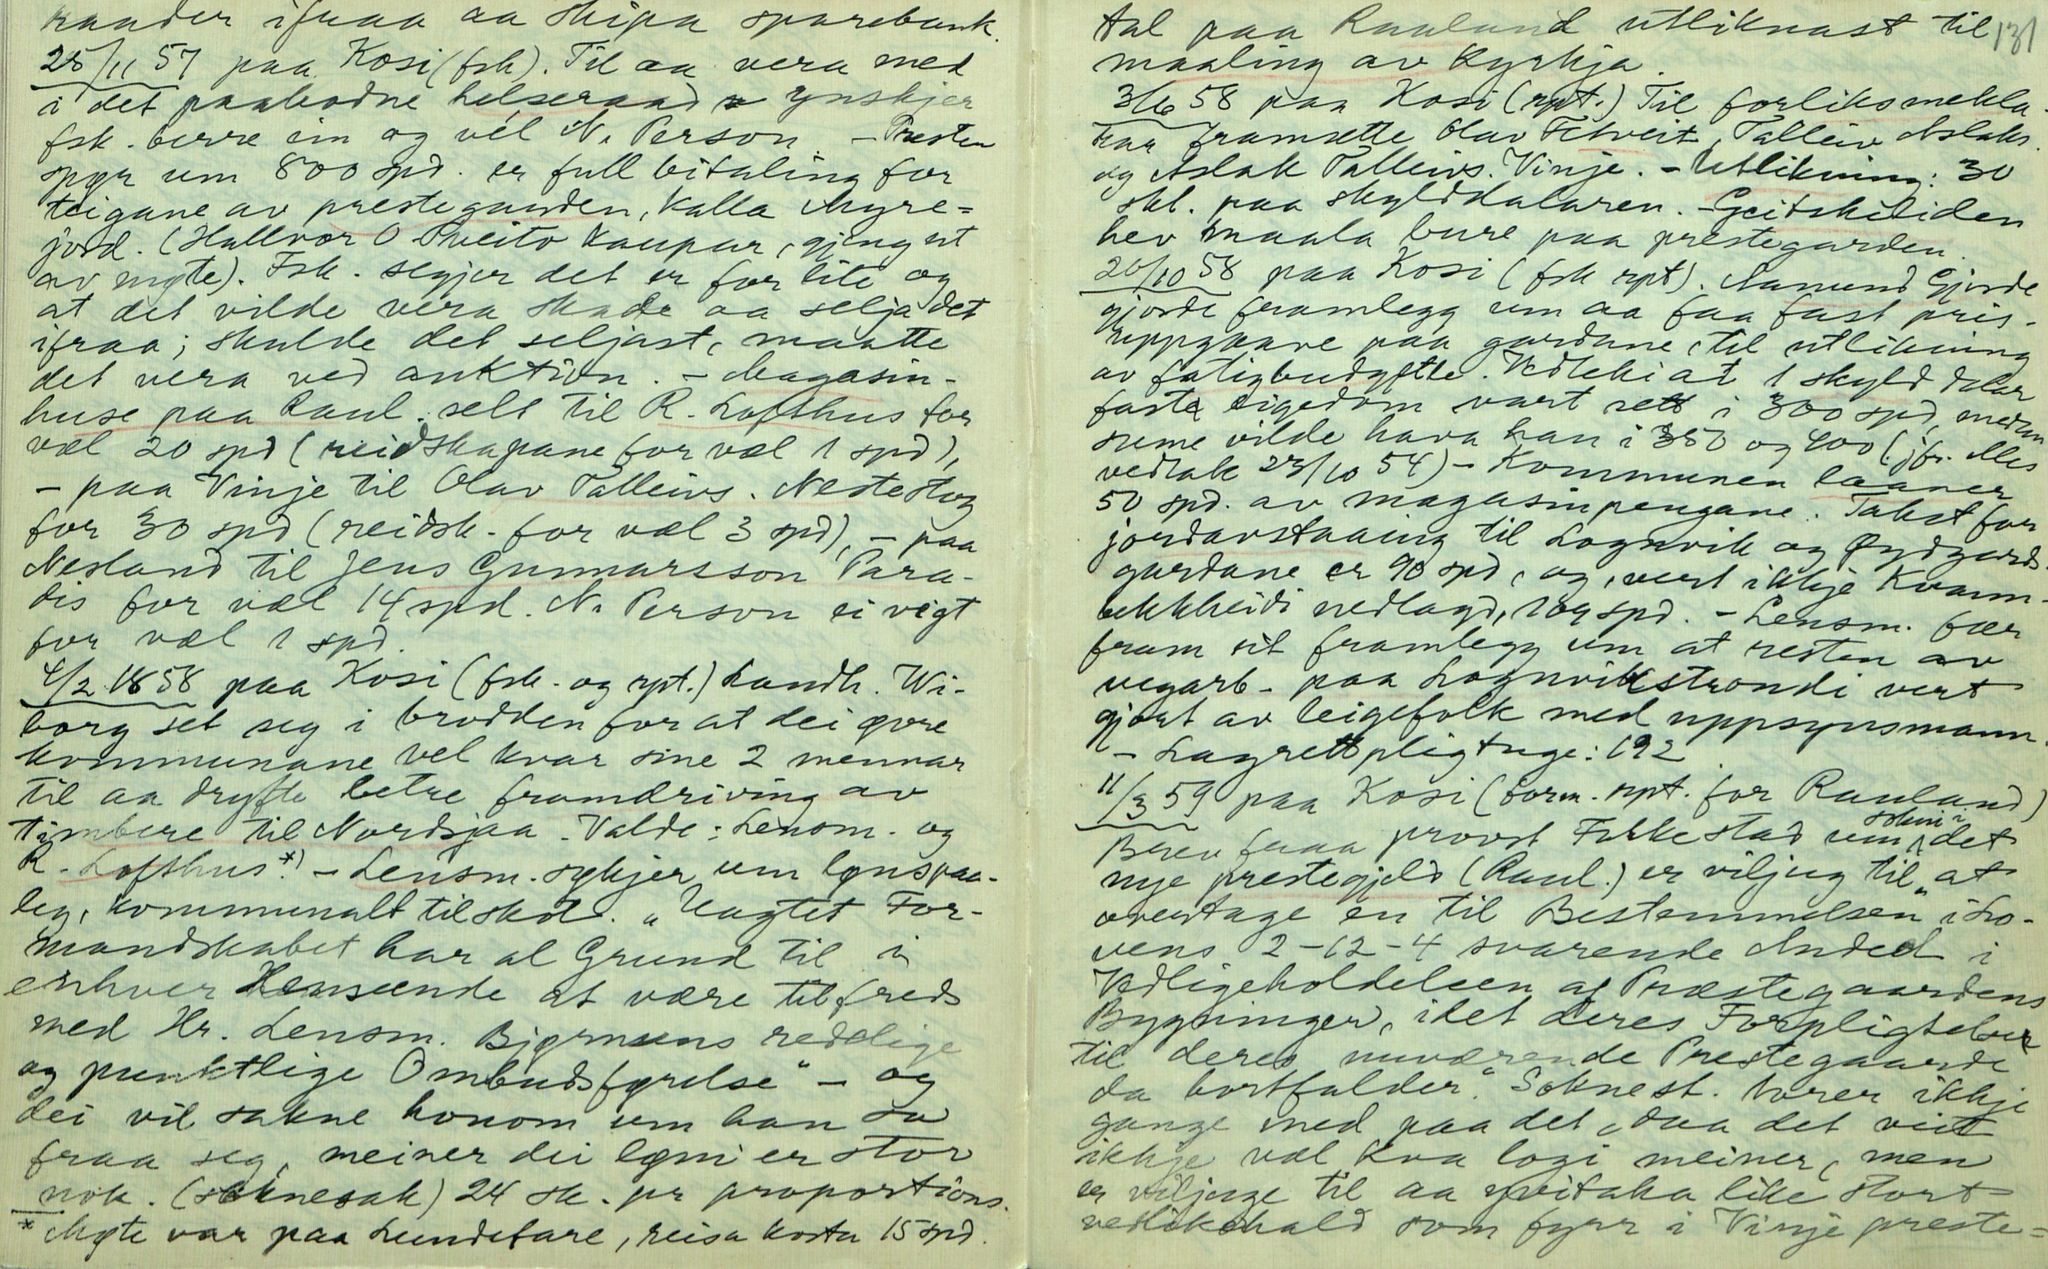 raader ifraa aa skipa sparebank.
25/11 57 paa Kosi (fsk). Til aa vera med
i det paabodne helseraad ynskjer
fsk. berre ein og vél N. Person. – Presten
spør um 800 spd. er full bitaling for
teigane av prestegarden, kalla Myre=
jord. (Hallvor O. Kaupar, gjeng ut
av møte). Fsk. segjer det er for lite og
at det vilde vera skade aa selja det
ifraa; skulde det seljast, maatte
det vera ved auktion. – Magasin-
huse paa Raul. selt til R. Lofthus for
væl 20 spd (reidskapane for væl 1 spd),
– paa Vinje til Olav Talleivs. Nestestog
for 30 spd (reidsk. for væl 3 spd), – paa
Nesland til Jens Gunnarsson Para-
dis for væl 14 spd. N. Person ei vigt
for væl 1 spd.
4/2 1858 paa Kosi (fsk. og rpt.) Landh. Wi-
borg set seg i brodden for at dei øvre
kommunane vel kvar sine 2 mennar
til aa drøfte betre framdriving av
timbere til Nordsjaa. Valde: Lensm. og
R. Lofthus.*) – Lensm. sykjer um lønspaa-
leg, kommunalt tilskot. „Uagtet For-
mandskabet har al Grund til i
enhver Henseende at være tilfreds
med Hr. Lensm. Bjørnsens redelige
og punktlige Ombudsførelse" – og
dei vil sakne honom um han sa
fraa seg, meiner dei løni er stor
nok. (soknesak) 24 sk. pr proportions.
* Møte var paa Lundefare, reisa kosta 15 spd.
tal paa Rauland utliknast til 131
maaling av Kyrkja.
3/6 58 paa Kosi (rpt.) Til forliksmekla-
rar framsette Olav Edtveit, Talleiv Aslaks.
og Aslak Talleivs. Vinje. – Utlikning: 30
skl. paa skylddalaren. – Geitskeliden
hev maala bure paa prestegarden.
20/10 58 paa Kosi (fsk rpt). Aamund Gjorde
gjorde framlegg um aa faa fast pris-
uppgaave paa gardane, til utlikning
av fatigbudgette. Vedteke at 1 skylddalar
faste eigedom vart sett i 300 spd, medan
sume vilde hava han i 350 og 400 (jfr. Mes
vedtak 23/10 54) – Kommunen laaner
50 spd. av magasinpengane. Takst for
jordavstaaing til Lognvik og Øydgards-
gardane er 90 spd, og, vert ikkje Kvam-
bekkheidi nedlagd, 104 spd. – Lensm. fær
fram sit framlegg um at resten av
vegarb. paa Lognvikstrondi vert
gjort av leigefolk med uppsynsmann.
– Lagrettspligtuge: 192
11/3 59 paa Kosi (form. rpt. for Rauland)
Brev fraa provst Folkestad um det
nye prestegjeld (Raul.) er viljug til „at
overtage en til Bestemmelsen i Lo-
vens 2–12–4 svarende Andeel i
Vedligeholdelsen af Præstegaardens
Bygninger, idet deres Forpligtelser
til deres nuværende Prestegaarde
da bortfalder." Soknest. torer ikkje
gange med paa det, daa det veit
ikkje væl kva logi meiner, men
er viljuge til aa yvitaka like stort
vedlikehald som fyrr i Vinje preste=